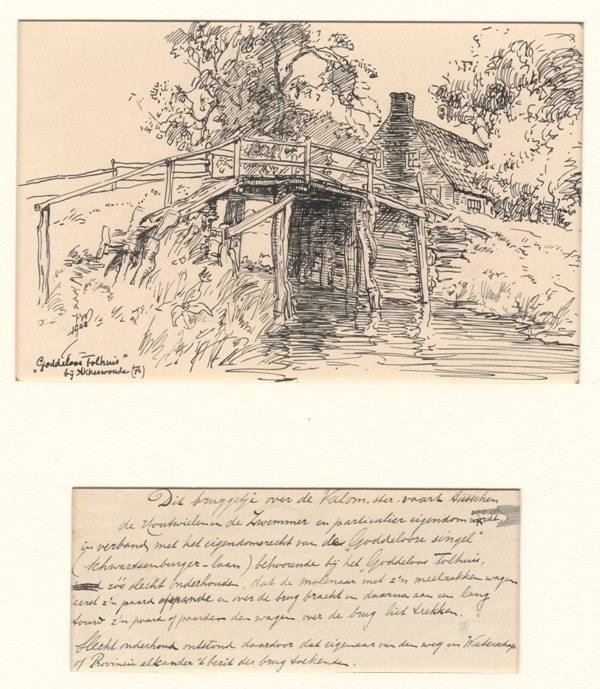 1908
"Goddeloos Tolhuis"
bij Akkerwoude (Fr.)
Dit bruggetje over de Valom-ster-vaart tusschen
de Houtwielen en de Zwemmer en particulier eigendom
in verband met het eigendomsrecht van de "Goddeloose singel"
(Schwartsenburger-laan) behoorende bij het "Goddeloos Tolhuis,
zóó slecht onderhouden, dat de molenaar met z'n meelzakken wagen
eerst z'n paard afspande en over de brug bracht en daarna aan een lang
touw z'n paard of paarden den wagen over de brug liet trekken.
Slecht onderhoud ontstond daardoor dat eigenaar van den weg en Waterschap
of Provincie elkander 't bezit der brug toekenden.